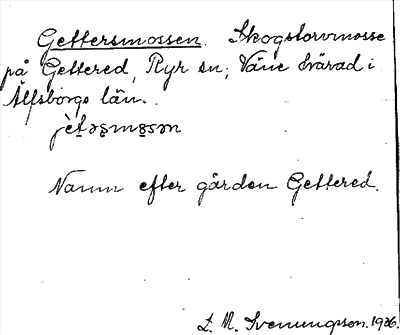 Gettersmossen. Skogstorvmosse
på Gettered, Ryr sn; Väne härad i
Älfsborgs län.
Namn efter gården Gettered.